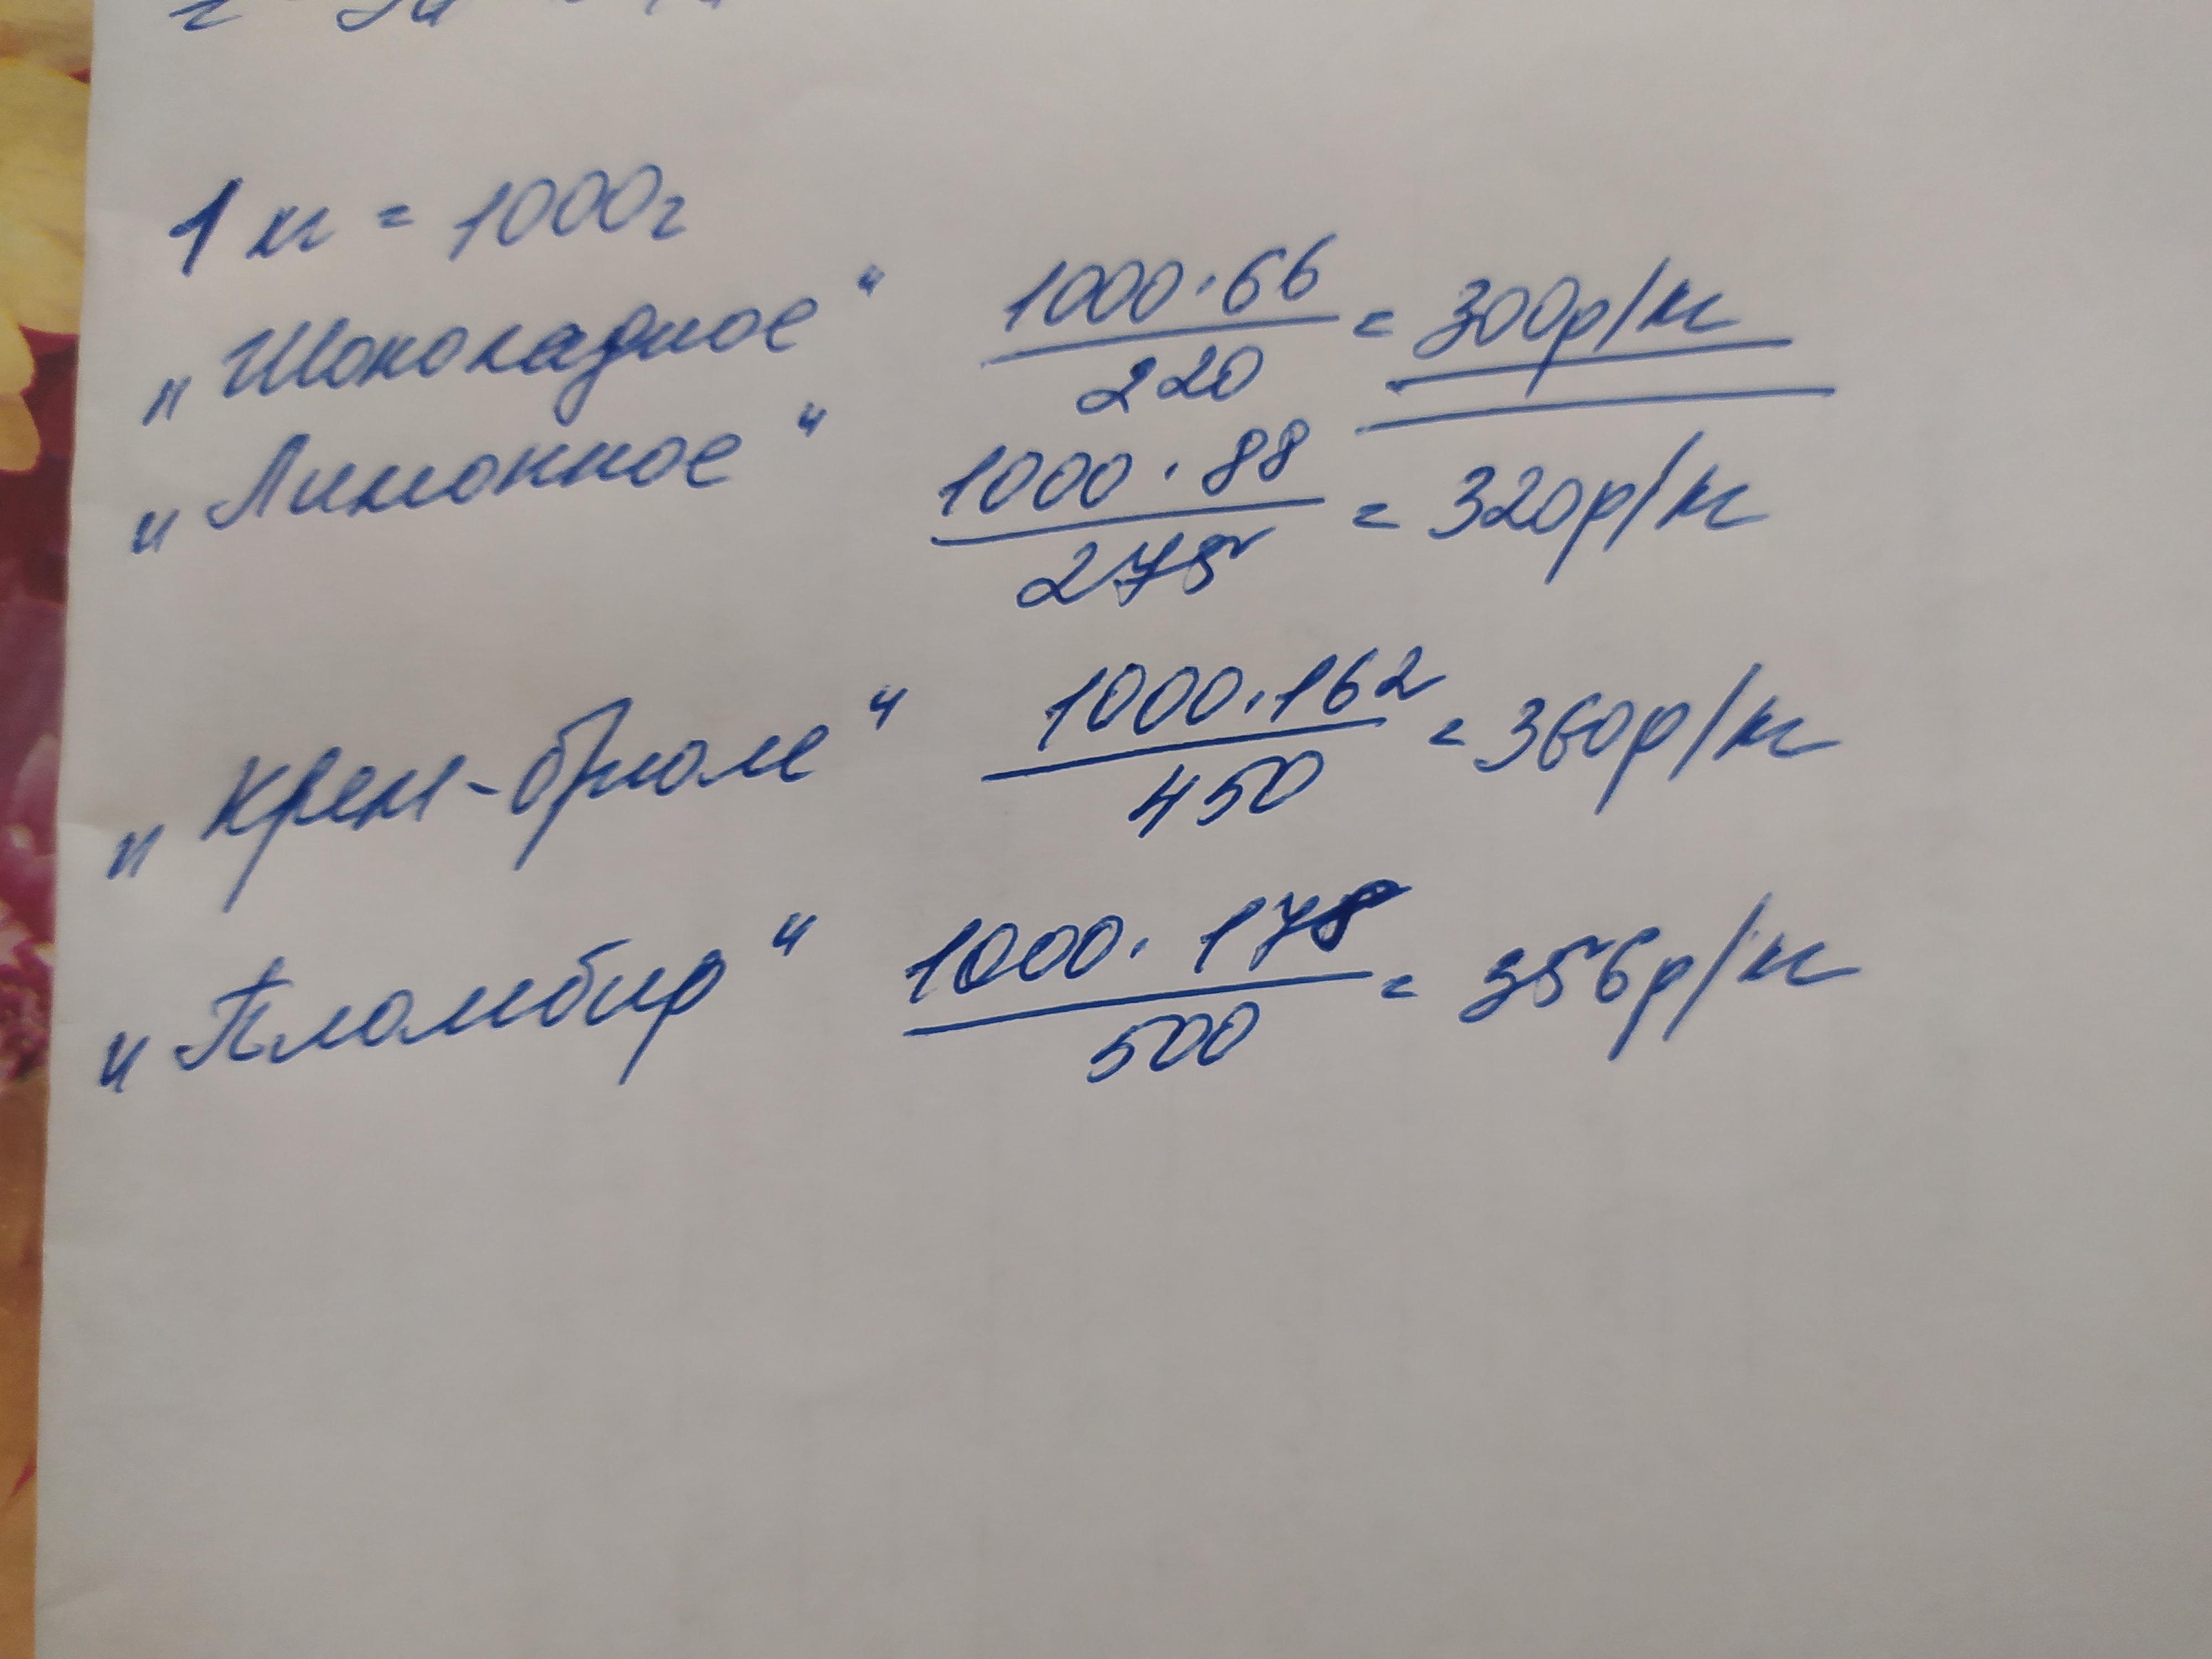 1 кг = 1000г
„Шоколадное“ 1000·66/220 = 300р/кг
„Лимонное“ 1000·88/275 = 320р/кг
„Крем-брюле“ 1000·162/450 = 360р/кг
„Пломбир“ 1000·178/500 = 356р/кг